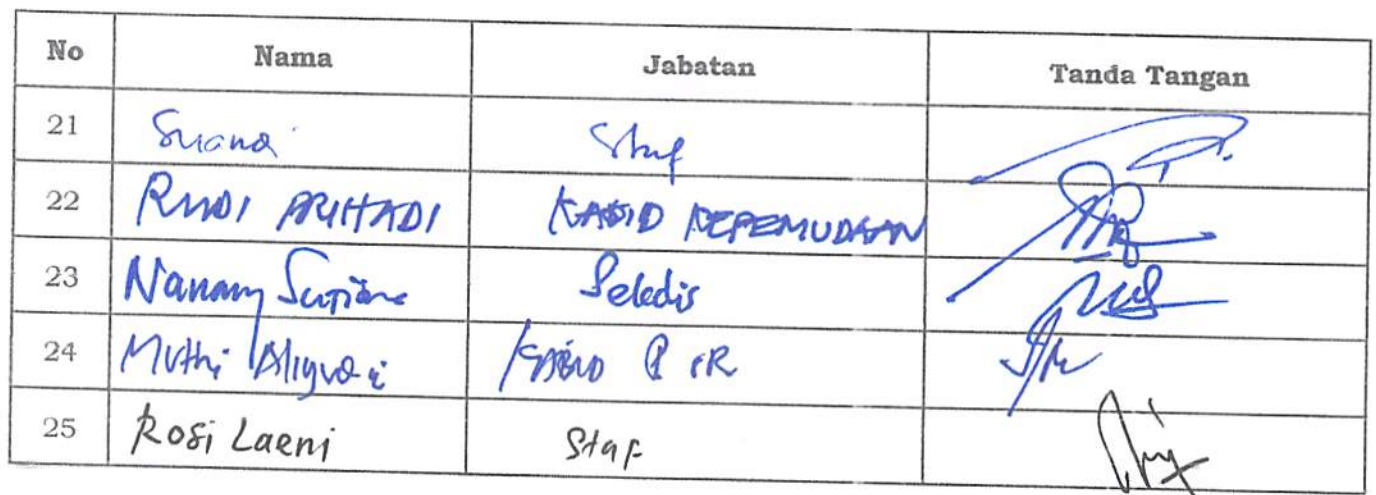 No Nama Jabatan Tanda Tangan
21 Suandi Staf
22 RUDI ARIHADI KABID KEPEMUDAAN
23 Nanang Sutiana Sekdis
24 Muthi KABID
25 Rosi Laeni Staf